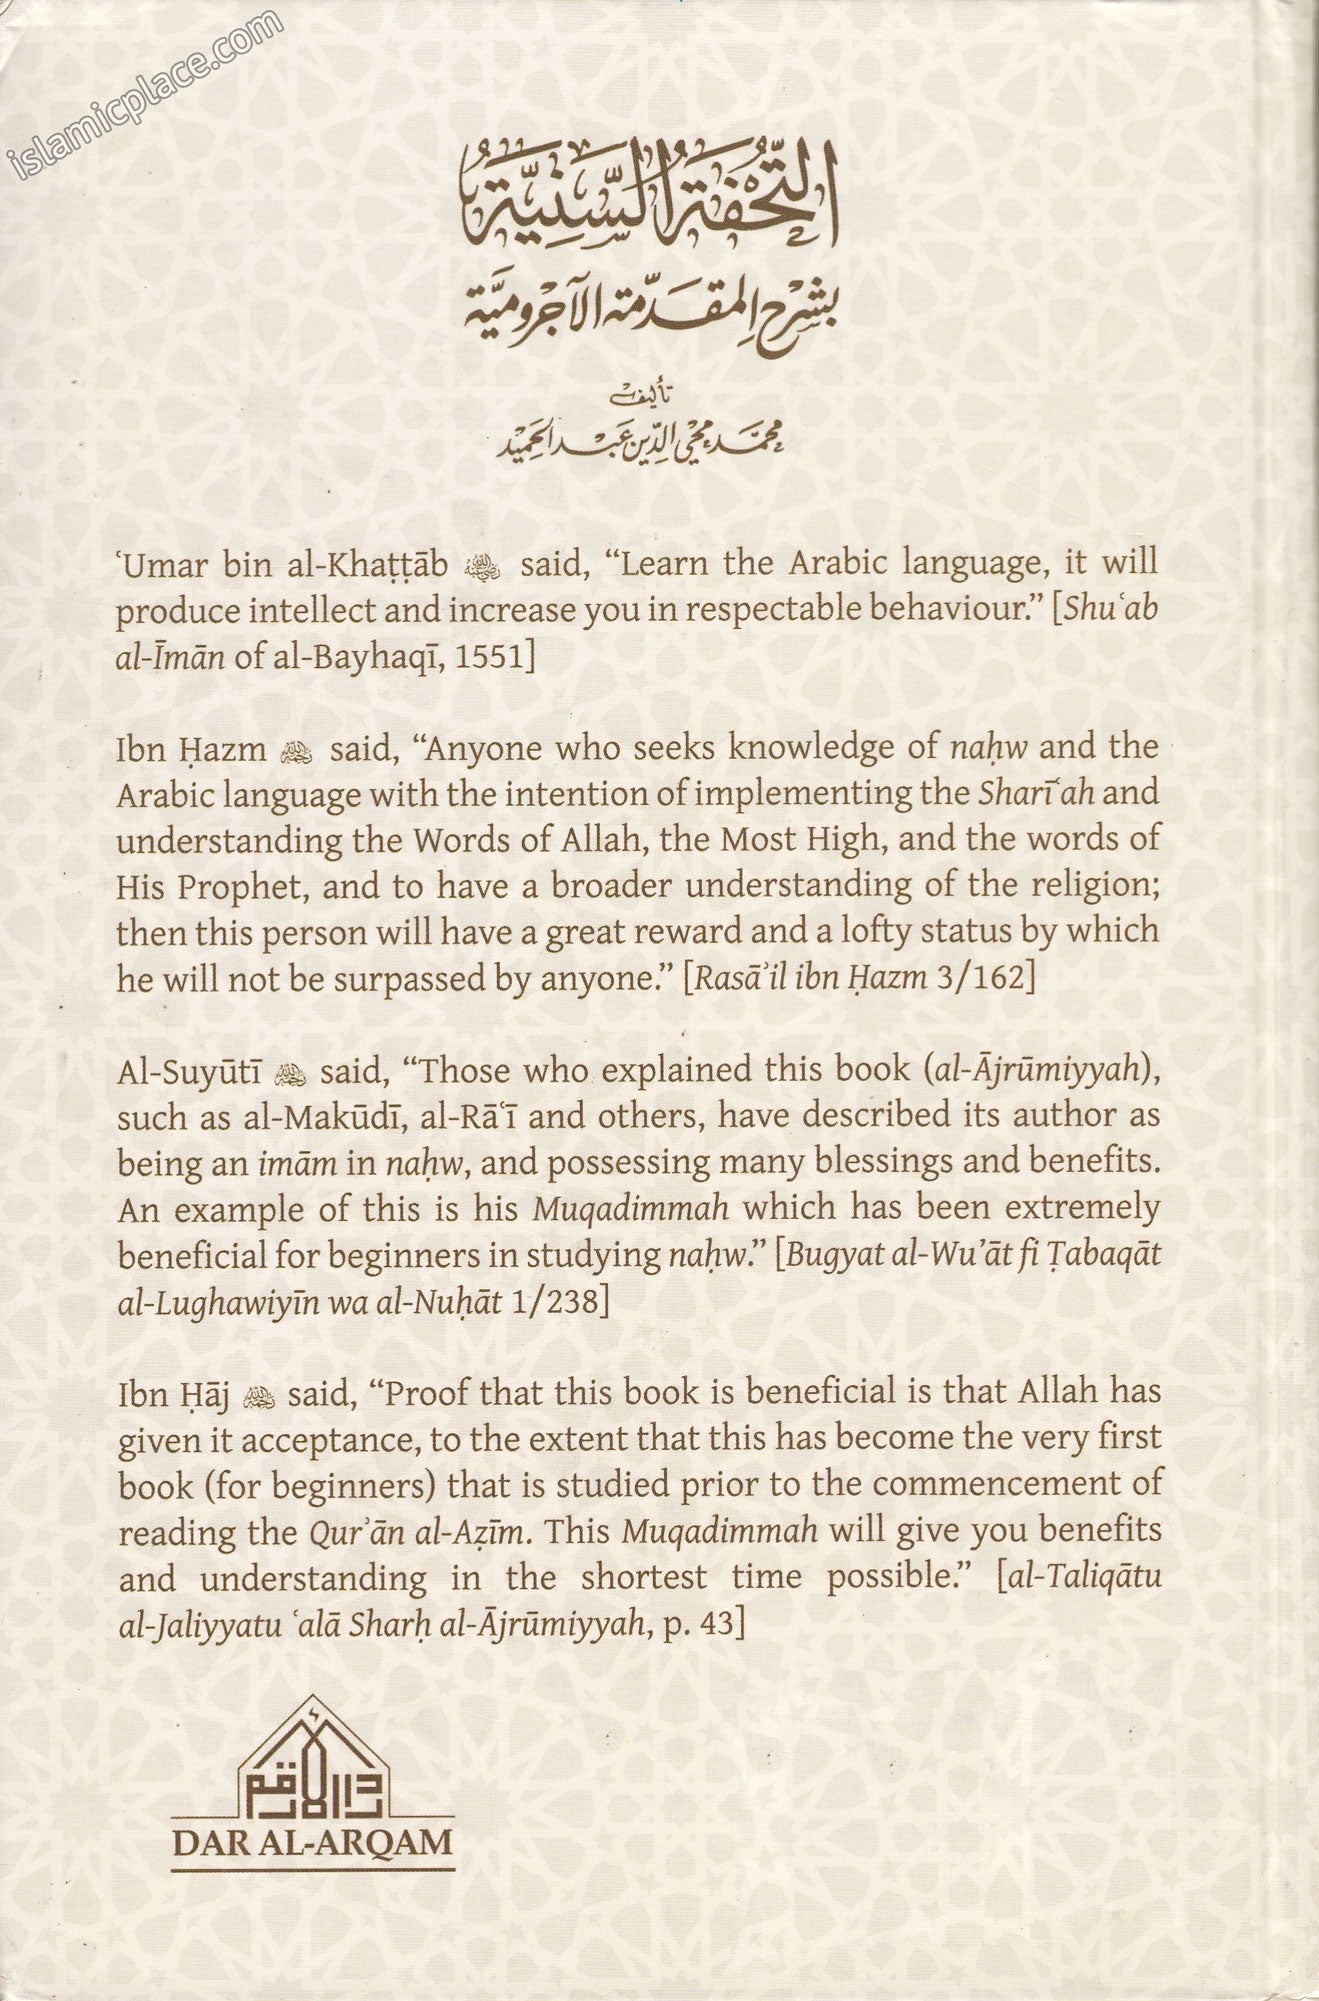 islamicplace.com
التُّحْفَةُ السَّنِيَّةُ
بِشَرْحِ المُقَدِّمَةِ الآجُرُّومِيَّةِ
تأليف
مُحَمَّد مُحْيِي الدِّين عَبْد الحَمِيْد
ʿUmar bin al-Khaṭṭāb said, “Learn the Arabic language, it will
produce intellect and increase you in respectable behaviour.” [Shuʿab
al-Īmān of al-Bayhaqī, 1551]
Ibn Ḥazm said, “Anyone who seeks knowledge of naḥw and the
Arabic language with the intention of implementing the Sharīʿah and
understanding the Words of Allah, the Most High, and the words of
His Prophet, and to have a broader understanding of the religion;
then this person will have a great reward and a lofty status by which
he will not be surpassed by anyone.” [Rasāʾil ibn Ḥazm 3/162]
Al-Suyūtī said, “Those who explained this book (al-Ājrūmiyyah),
such as al-Makūdī, al-Rāʿī and others, have described its author as
being an imām in naḥw, and possessing many blessings and benefits.
An example of this is his Muqadimmah which has been extremely
beneficial for beginners in studying naḥw.” [Bugyat al-Wu’āt fi Ṭabaqāt
al-Lughawiyīn wa al-Nuḥāt 1/238]
Ibn Ḥāj said, “Proof that this book is beneficial is that Allah has
given it acceptance, to the extent that this has become the very first
book (for beginners) that is studied prior to the commencement of
reading the Qurʾān al-Aẓīm. This Muqadimmah will give you benefits
and understanding in the shortest time possible.” [al-Taliqātu
al-Jaliyyatu ʿalā Sharḥ al-Ājrūmiyyah, p. 43]
دار الأرقم
DAR AL-ARQAM